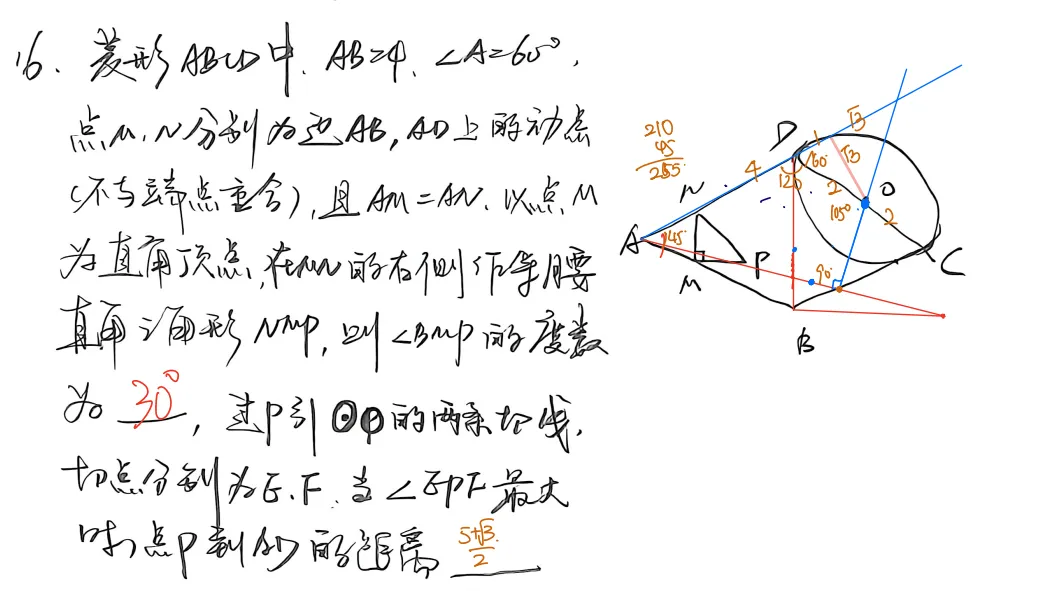 16. 菱形ABCD中, AB=4, ∠A=60°,
点M、N分别为边AB, AD上的动点
(不与端点重合), 且AM=AN. 以点M
为直角顶点, 在MN的右侧作等腰
直角三角形NMP, 则∠BMP的度数
为 30°, 过P引⊙O的两条切线,
切点分别为E、F. 当∠EPF最大
时, 点P到AD的距离 (5+√3)/2
210
45
255
D
1
√3
√3
60°
120
4
N
2
O
105°
2
A
45°
P
90°
C
M
B